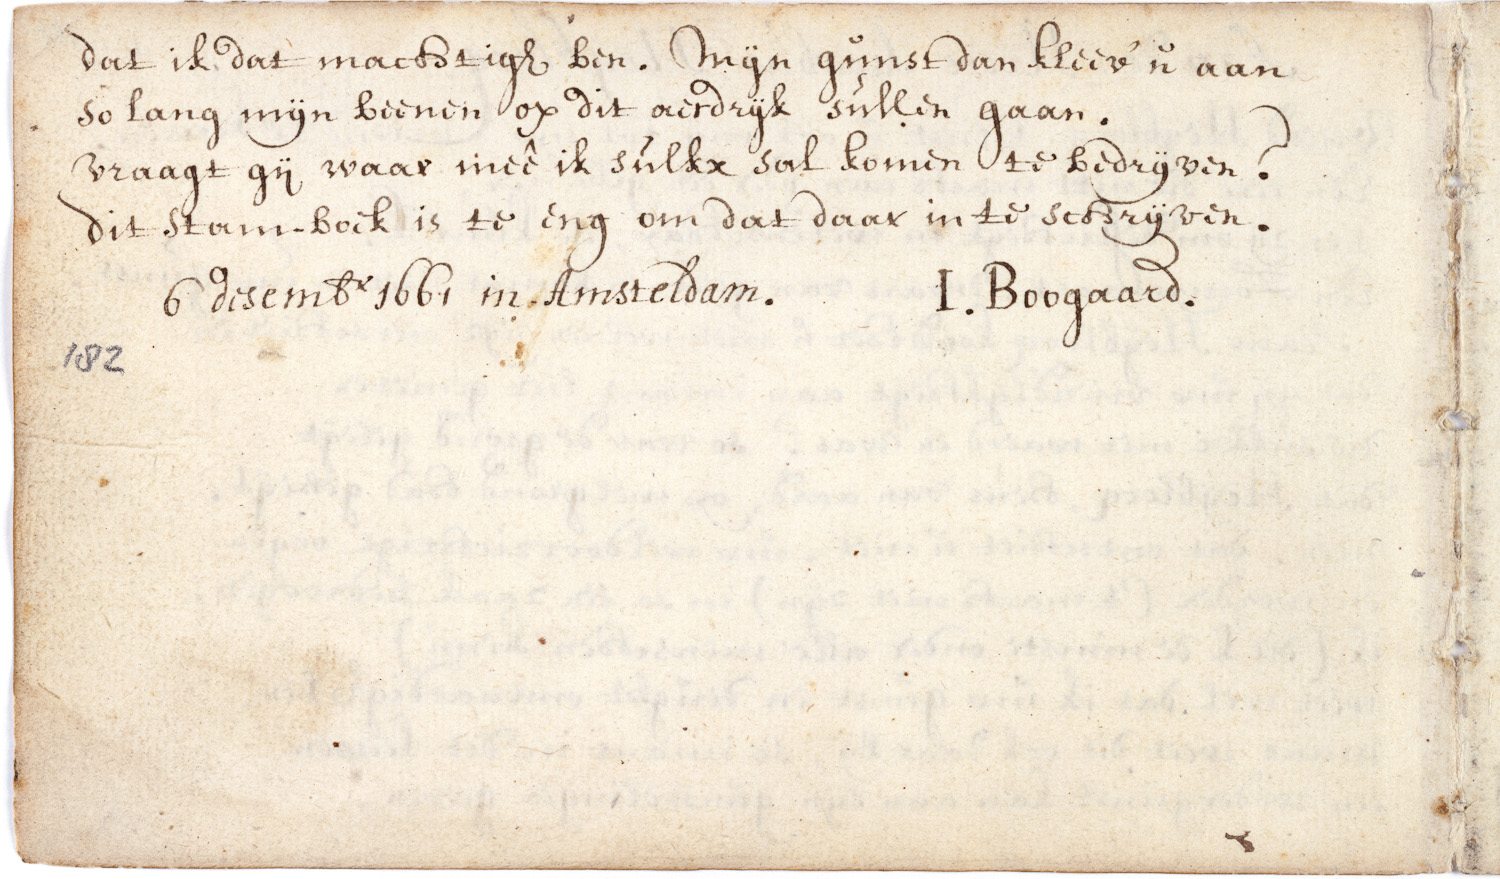 dat ik dat machtigh ben. Mijn gunst dan kleev' u aan
so lang mijn beenen op dit aerdryk sullen gaan.
vraagt gij waar meê ik sulkx sal komen te bedrijven?
dit stam-boek is te eng om dat daar in te schrijven.
6 desembr 1661 in Amsteldam. I. Boogaard.
182